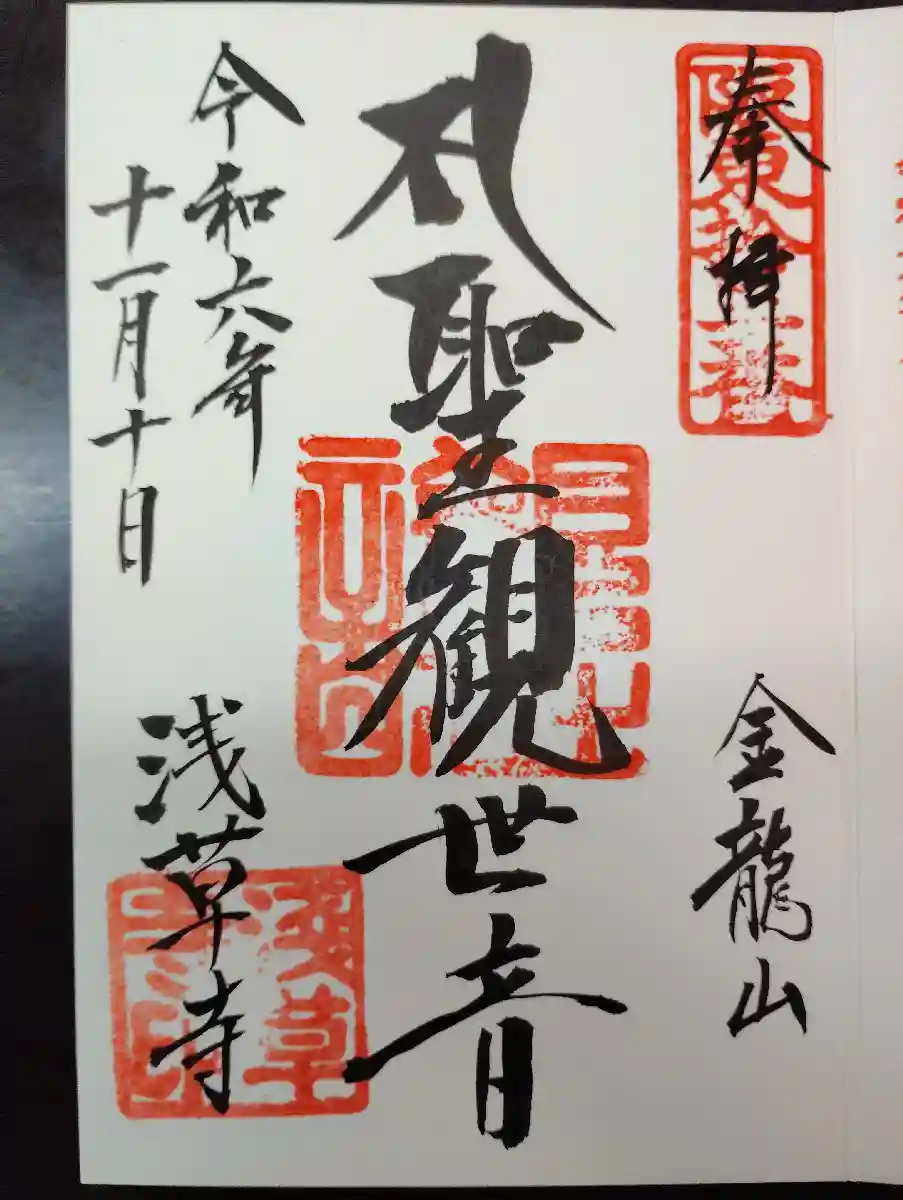 奉拝
阪東拾三番
金龍山
聖観世音
令和六年
十一月十日
浅草寺